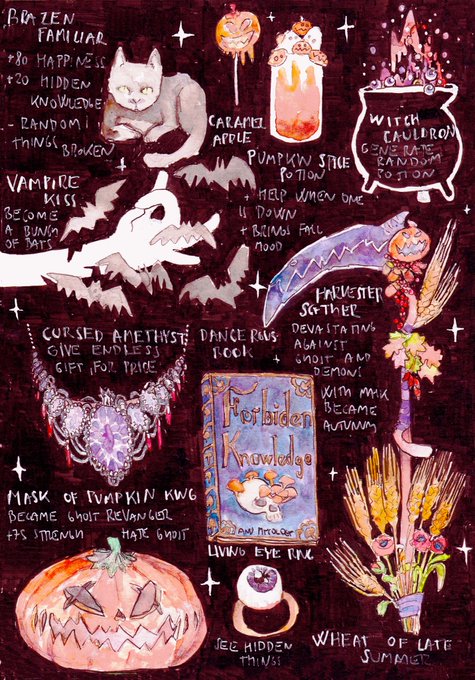 BRAZEN
FAMILIAR
+80 HAPPINESS
+20 HIDDEN
KNOWLEDGE
- RANDOM
THINGS
BROKEN
CARAMEL
APPLE
PUMPKIN SPICE
POTION
+ HELP WHEN ONE
IS DOWN
+ BRINGS FALL
MOOD
WITCH
CAULDRON
GENERATE
RANDOM
POTION
VAMPIRE
KISS
BECOME
A BUNCH
OF BATS
HARVESTER
DEVASTATING
AGAINST
GHOST AND
DEMONS
WITH MASK
BECAME
AUTUMN
CURSED AMETHYST
GIVE ENDLESS
GIFT FOR PRICE
DANGEROUS
BOOK
Forbiden
Knowledge
MASK OF PUMPKIN KING
BECAME GHOST REVANGER
+75 STRENGTH HATE GHOST
LIVING EYE RING
SEE HIDDEN
THINGS
WHEAT OF LATE
SUMMER